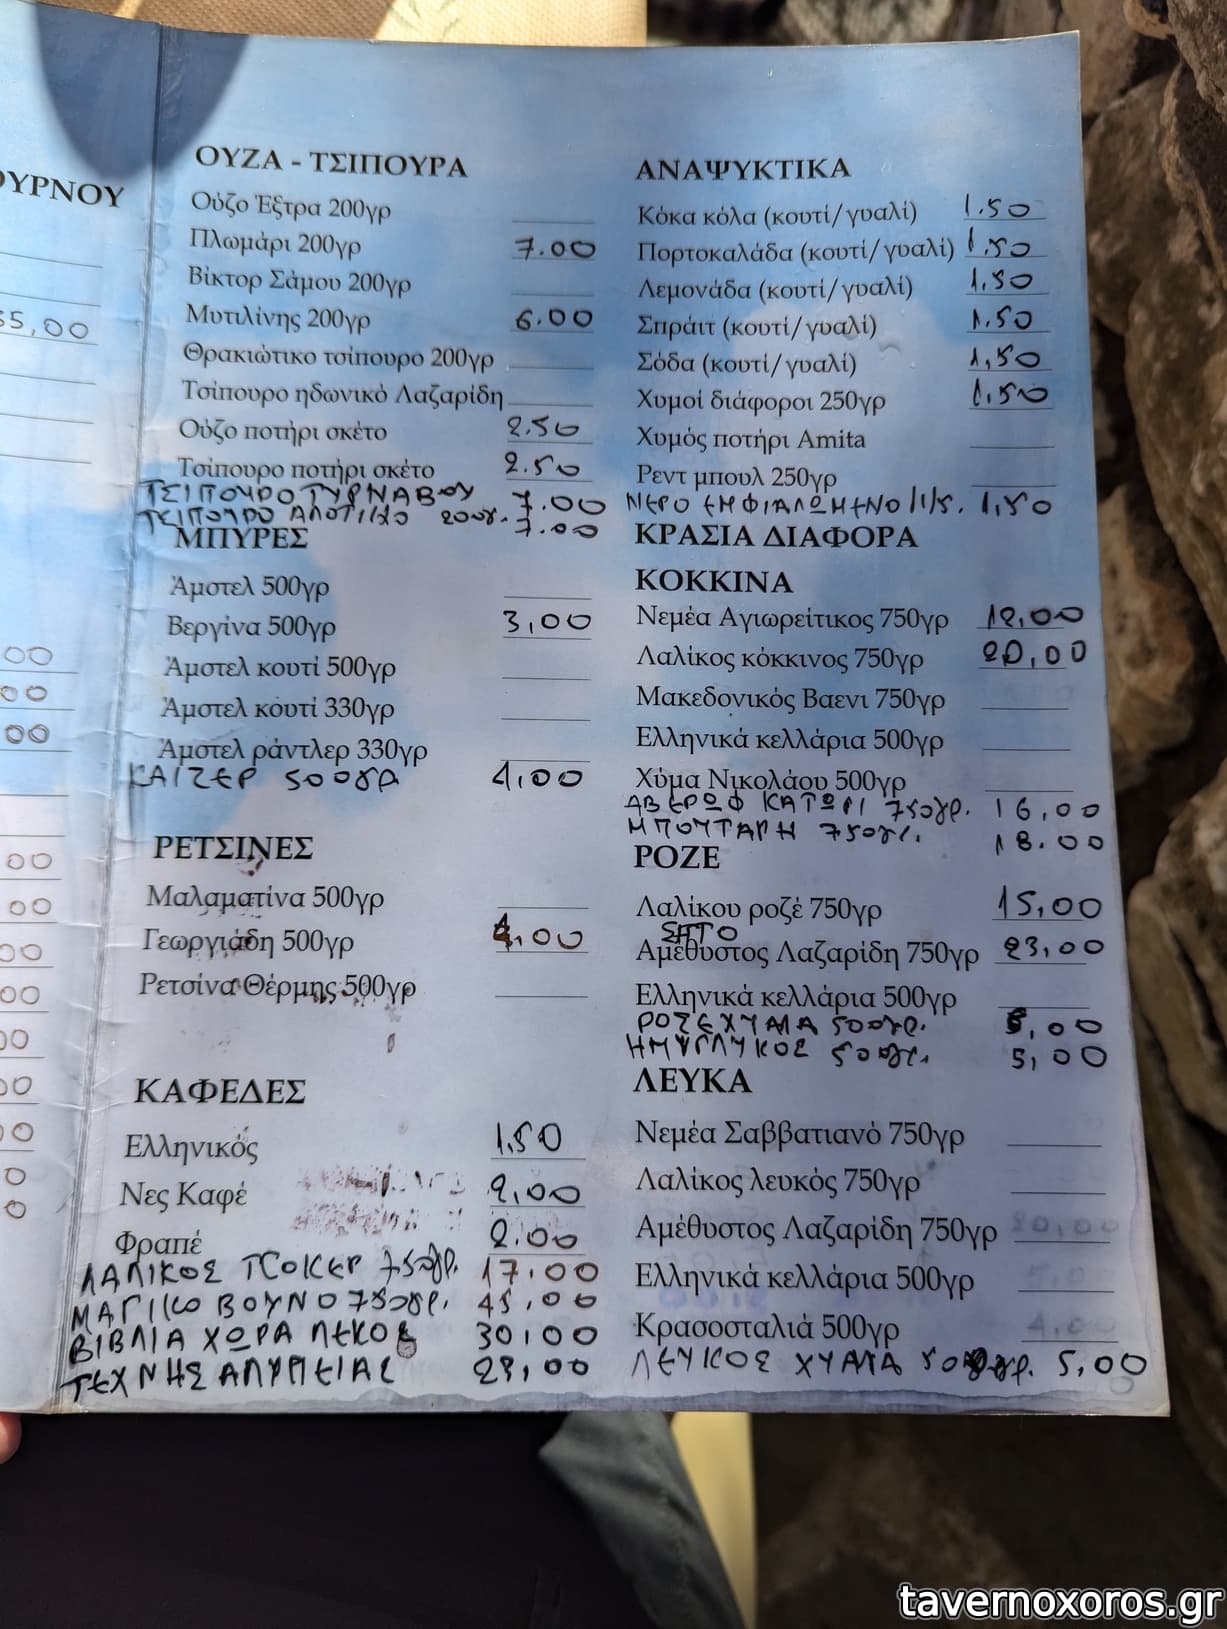 ΟΥΡΝΟΥ
35,00
00
00
00
00
00
00
00
00
00
00
0
0
ΟΥΖΑ - ΤΣΙΠΟΥΡΑ
Ούζο Έξτρα 200γρ
Πλωμάρι 200γρ 7.00
Βίκτορ Σάμου 200γρ
Μυτιλίνης 200γρ 6.00
Θρακιώτικο τσίπουρο 200γρ
Τσίπουρο ηδωνικό Λαζαρίδη
Ούζο ποτήρι σκέτο 2.50
Τσίπουρο ποτήρι σκέτο 2.50
ΤΣΙΠΟΥΡΟ ΤΥΡΝΑΒΟΥ 7.00
ΤΣΙΠΟΥΡΟ ΑΠΟΤΙΚΟ 200γρ. 7.00
ΜΠΥΡΕΣ
Άμστελ 500γρ
Βεργίνα 500γρ 3,00
Άμστελ κουτί 500γρ
Άμστελ κουτί 330γρ
Άμστελ ράντλερ 330γρ
ΚΑΙΖΕΡ 500γρ 4,00
ΡΕΤΣΙΝΕΣ
Μαλαματίνα 500γρ
Γεωργιάδη 500γρ 4,00
Ρετσίνα Θέρμης 500γρ
ΚΑΦΕΔΕΣ
Ελληνικός 1.50
Νες Καφέ 2,00
Φραπέ 2.00
ΛΑΛΙΚΟΣ ΤΣΟΚΕΡ 750γρ. 17,00
ΜΑΓΙΚΟ ΒΟΥΝΟ 750γρ. 45,00
ΒΙΒΛΙΑ ΧΩΡΑ ΛΕΚΟΣ 30,00
ΤΕΧΝΗΣ ΑΛΥΠΕΙΑΣ 23,00
ΑΝΑΨΥΚΤΙΚΑ
Κόκα κόλα (κουτί/γυαλί) 1.50
Πορτοκαλάδα (κουτί/γυαλί) 1.50
Λεμονάδα (κουτί/γυαλί) 1,50
Σπράιτ (κουτί/γυαλί) 1.50
Σόδα (κουτί/γυαλί) 1,50
Χυμοί διάφοροι 250γρ 1,50
Χυμός ποτήρι Amita
Ρεντ μπουλ 250γρ
ΝΕΡΟ ΕΜΦΙΑΛΩΜΕΝΟ 1,50
ΚΡΑΣΙΑ ΔΙΑΦΟΡΑ
ΚΟΚΚΙΝΑ
Νεμέα Αγιωρείτικος 750γρ 12,00
Λαλίκος κόκκινος 750γρ 20,00
Μακεδονικός Βαενι 750γρ
Ελληνικά κελλάρια 500γρ
Χύμα Νικολάου 500γρ
ΑΒΕΡΩΦ ΚΑΤΩΓΙ 750γρ. 16,00
ΜΠΟΥΤΑΡΗ 750γρ. 18.00
ΡΟΖΕ
Λαλίκου ροζέ 750γρ 15,00
ΣΑΤΟ
Αμέθυστος Λαζαρίδη 750γρ 23,00
Ελληνικά κελλάρια 500γρ
ΡΟΖΕ ΧΥΜΑ 500γρ. 5,00
ΗΜΥΓΛΥΚΟΣ 500γρ. 5,00
ΛΕΥΚΑ
Νεμέα Σαββατιανό 750γρ
Λαλίκος λευκός 750γρ
Αμέθυστος Λαζαρίδη 750γρ 20,00
Ελληνικά κελλάρια 500γρ
Κρασοσταλιά 500γρ 4,00
ΛΕΥΚΟΣ ΧΥΜΑ 500γρ. 5,00
tavernoxoros.gr